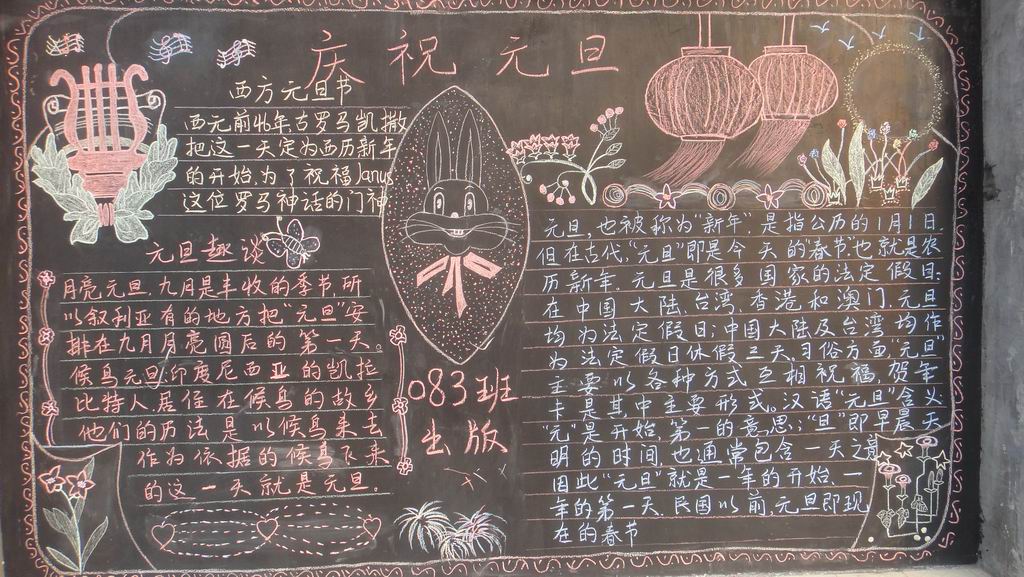 庆祝元旦
西方元旦节
西元前46年古罗马凯撒
把这一天定为西历新年
的开始,为了祝福Janus
这位罗马神话的门神
元旦趣谈
月亮元旦,九月是丰收的季节,所
以叙利亚有的地方把"元旦"安
排在九月月亮圆后的第一天。
候鸟元旦,印度尼西亚的凯拉
比特人居住在候鸟的故乡
他们的历法是以候鸟来去
作为依据的候鸟飞来
的这一天就是元旦。
083班
出版
元旦,也被称为"新年",是指公历的1月1日,
但在古代,"元旦"即是今天的"春节",也就是农
历新年,元旦是很多国家的法定假日;
在中国大陆,台湾,香港和澳门,元旦
均为法定假日;中国大陆及台湾均作
为法定假日休假三天,习俗方面,"元旦"
主要以各种方式互相祝福,贺年
卡是其中主要形式。汉语"元旦"含义
"元"是开始,第一的意思;"旦"即早晨天
明的时间,也通常包含一天之意
因此"元旦"就是一年的开始,一
年的第一天,民国以前,元旦即现
在的春节